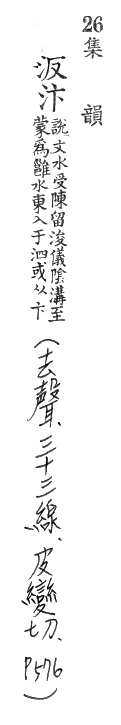 26
集韻
汳汴
說文水受陳留浚儀陰溝至
蒙為雝水東入于泗或从卞
(去聲、三十三線、皮變切、P576)